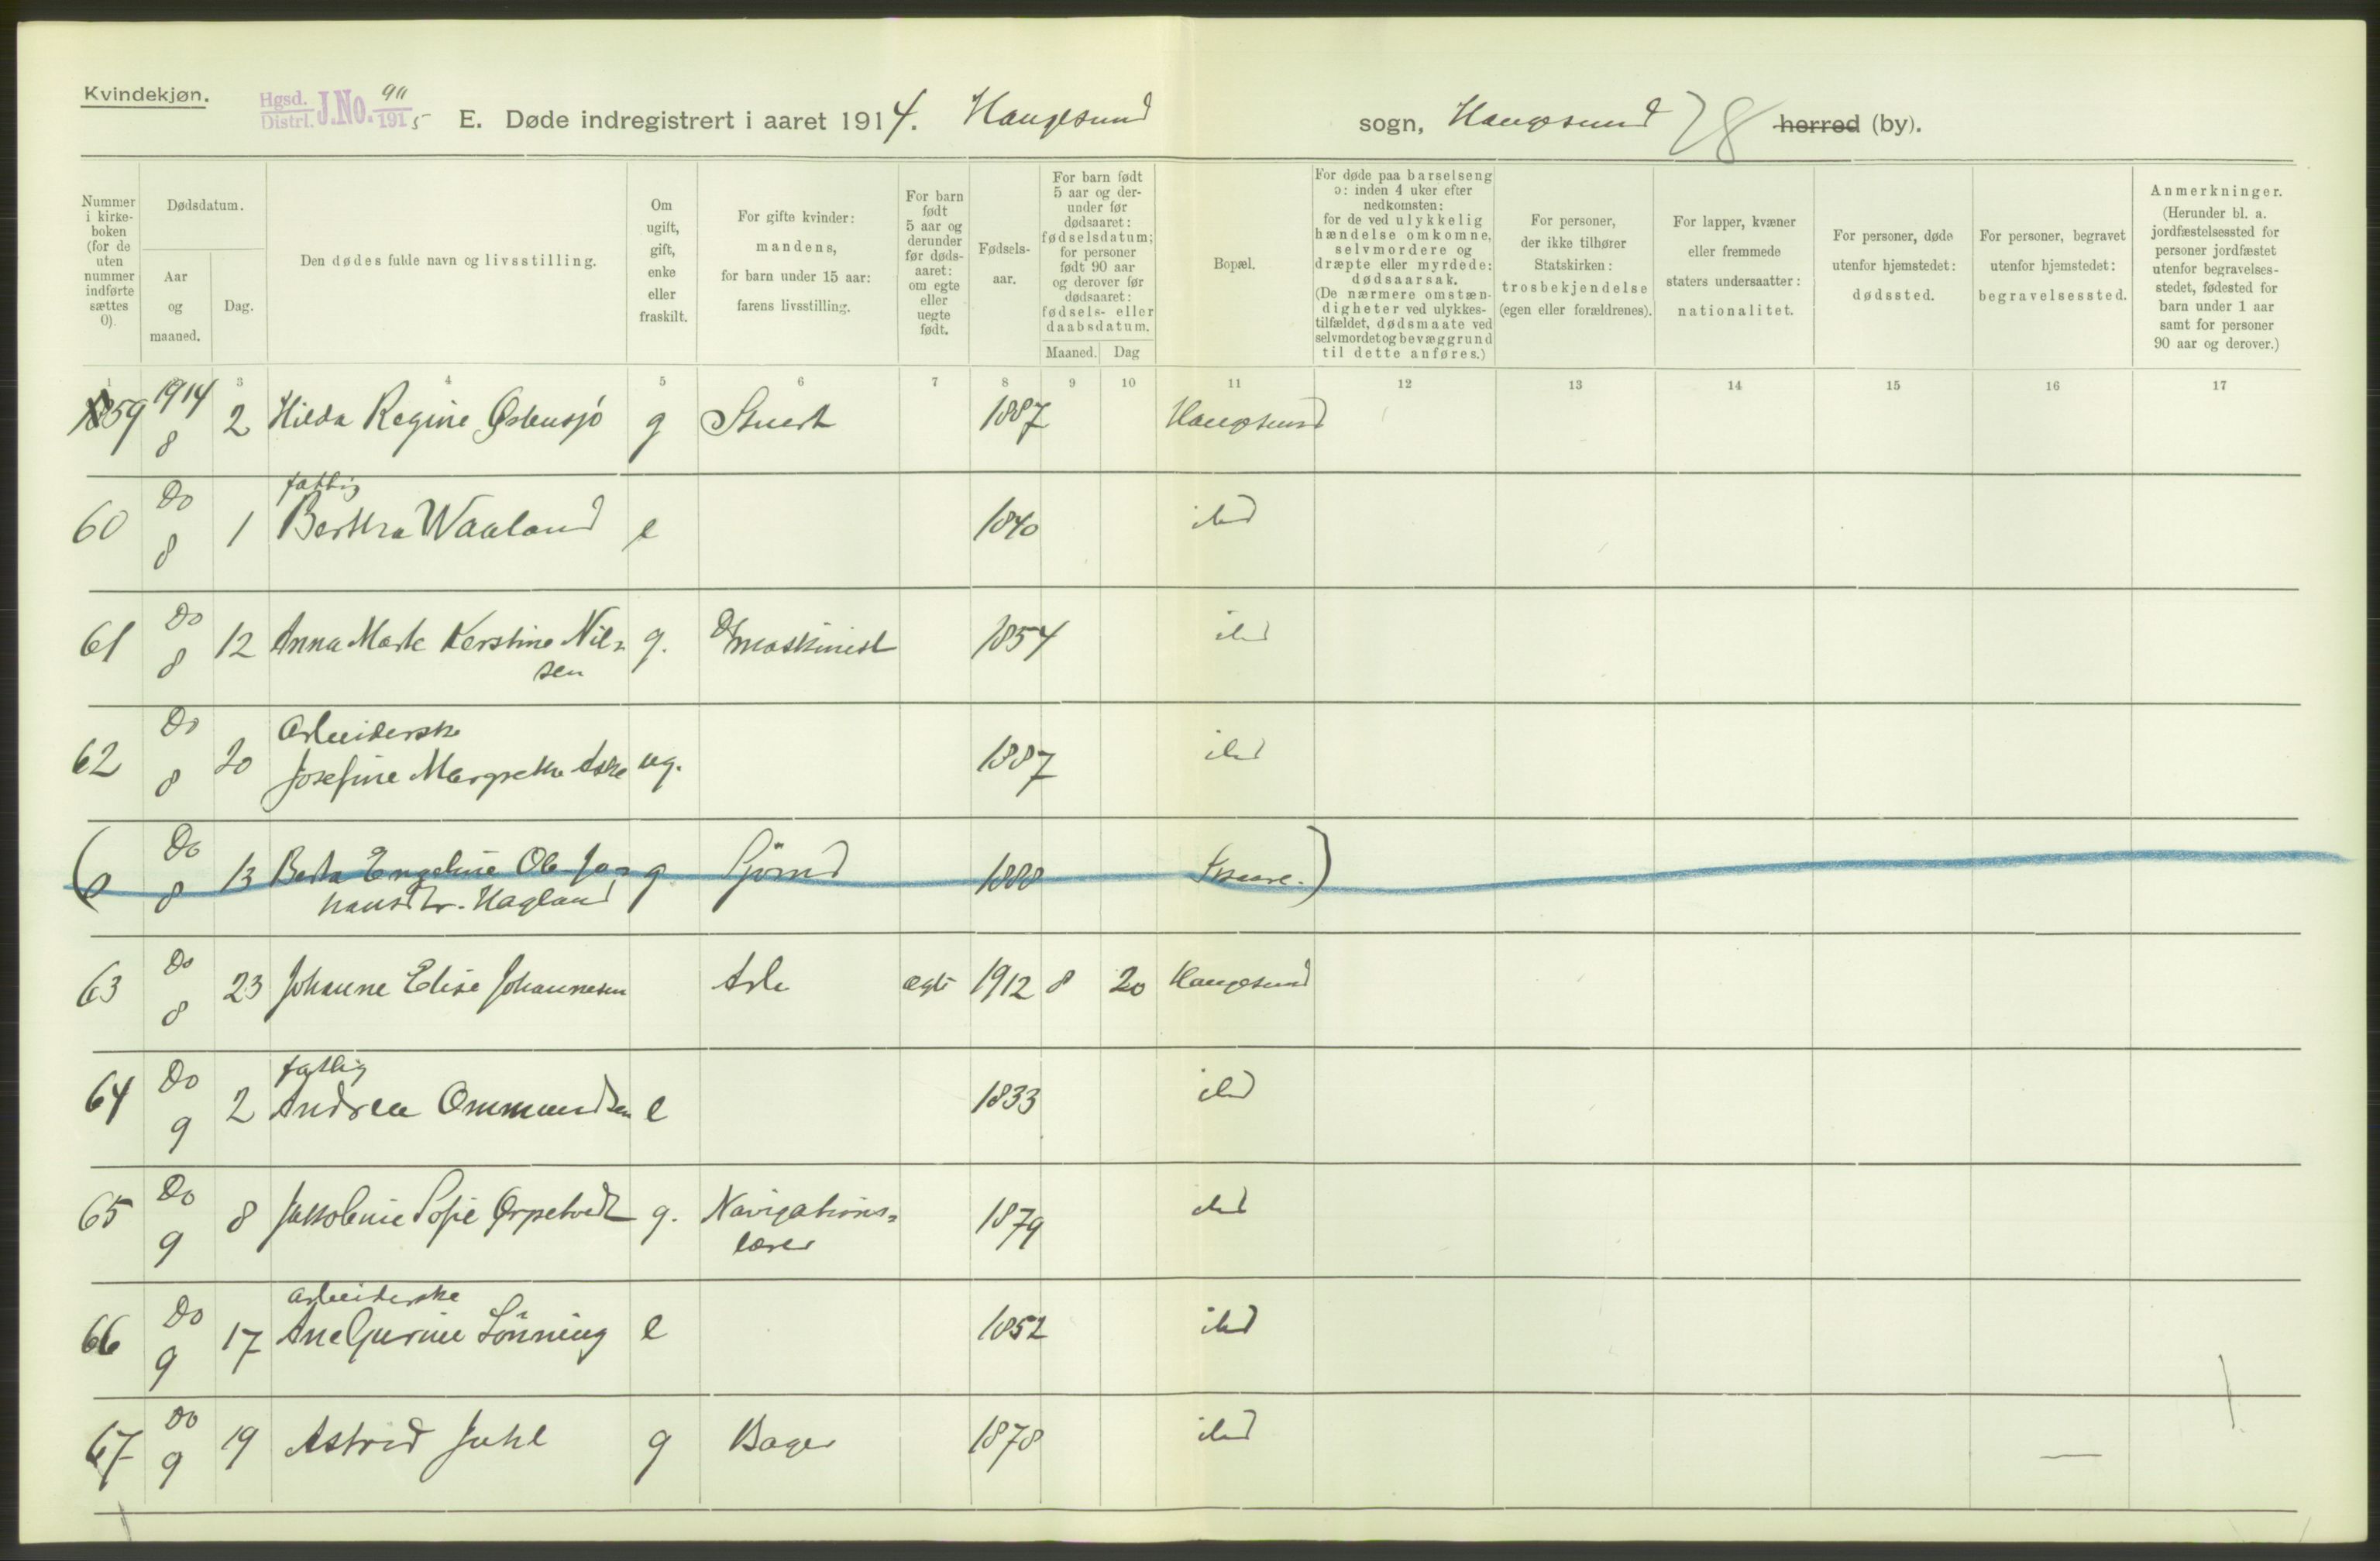 Kvindekjøn.
Hgsd. Distrl. J.No. 911/1915
E. Døde indregistrert i aaret 1914. Haugesund sogn, Haugesund herred (by).
Nummer i kirkeboken (for de uten nummer indførte sættes 0).
Dødsdatum.
Aar og maaned.
Dag.
Den dødes fulde navn og livsstilling.
Om ugift, gift, enke eller fraskilt.
For gifte kvinder: mandens, for barn under 15 aar: farens livsstilling.
For barn født 5 aar og derunder før dødsaaret: om egte eller uegte født.
Fødselsaar.
For barn født 5 aar og derunder før dødsaaret: fødselsdatum; for personer født 90 aar og derover før dødsaaret: fødsels- eller daabsdatum.
Maaned. Dag
Bopæl.
For døde paa barselseng ɔ: inden 4 uker efter nedkomsten: for de ved ulykkelig hændelse omkomne, selvmordere og dræpte eller myrdede: dødsaarsak. (De nærmere omstændigheter ved ulykkestilfældet, dødsmaate ved selvmordet og bevæggrund til dette anføres.)
For personer, der ikke tilhører Statskirken: trosbekjendelse (egen eller forældrenes).
For lapper, kvæner eller fremmede staters undersaatter: nationalitet.
For personer, døde utenfor hjemstedet: dødssted.
For personer, begravet utenfor hjemstedet: begravelsessted.
Anmerkninger. (Herunder bl. a. jordfæstelsessted for personer jordfæstet utenfor begravelsesstedet, fødested for barn under 1 aar samt for personer 90 aar og derover.)
1 2 3 4 5 6 7 8 9 10 11 12 13 14 15 16 17
59 1914 8 2 Hilda Regine Østensjø g Stuert 1887 Haugesund
fattig
60 Do 8 1 Bertha Waaland e 1840 ibd
61 Do 8 12 Anna Marte Kerstine Nilsen g. maskinist 1854 ibd
Arbeiderske
62 Do 8 20 Josefine Margrethe Aske ug. 1887 ibd
(0 Do 8 13 Berta Engeline Ole Johansdtr. Hagland g Sjømd 1888 Skaare.)
63 Do 8 23 Johanne Elise Johannesen Arb egte 1912 8 20 Haugesund
fattig
64 Do 9 2 Andrea Ommundsen e 1833 ibd
65 Do 9 8 Jakobine Sofie Ørpetvedt g. Navigationslærer 1879 ibd
arbeiderske
66 Do 9 17 Ane Gurine Lönning e 1852 ibd
67 Do 9 19 Astrid Juhl g Bager 1878 ibd